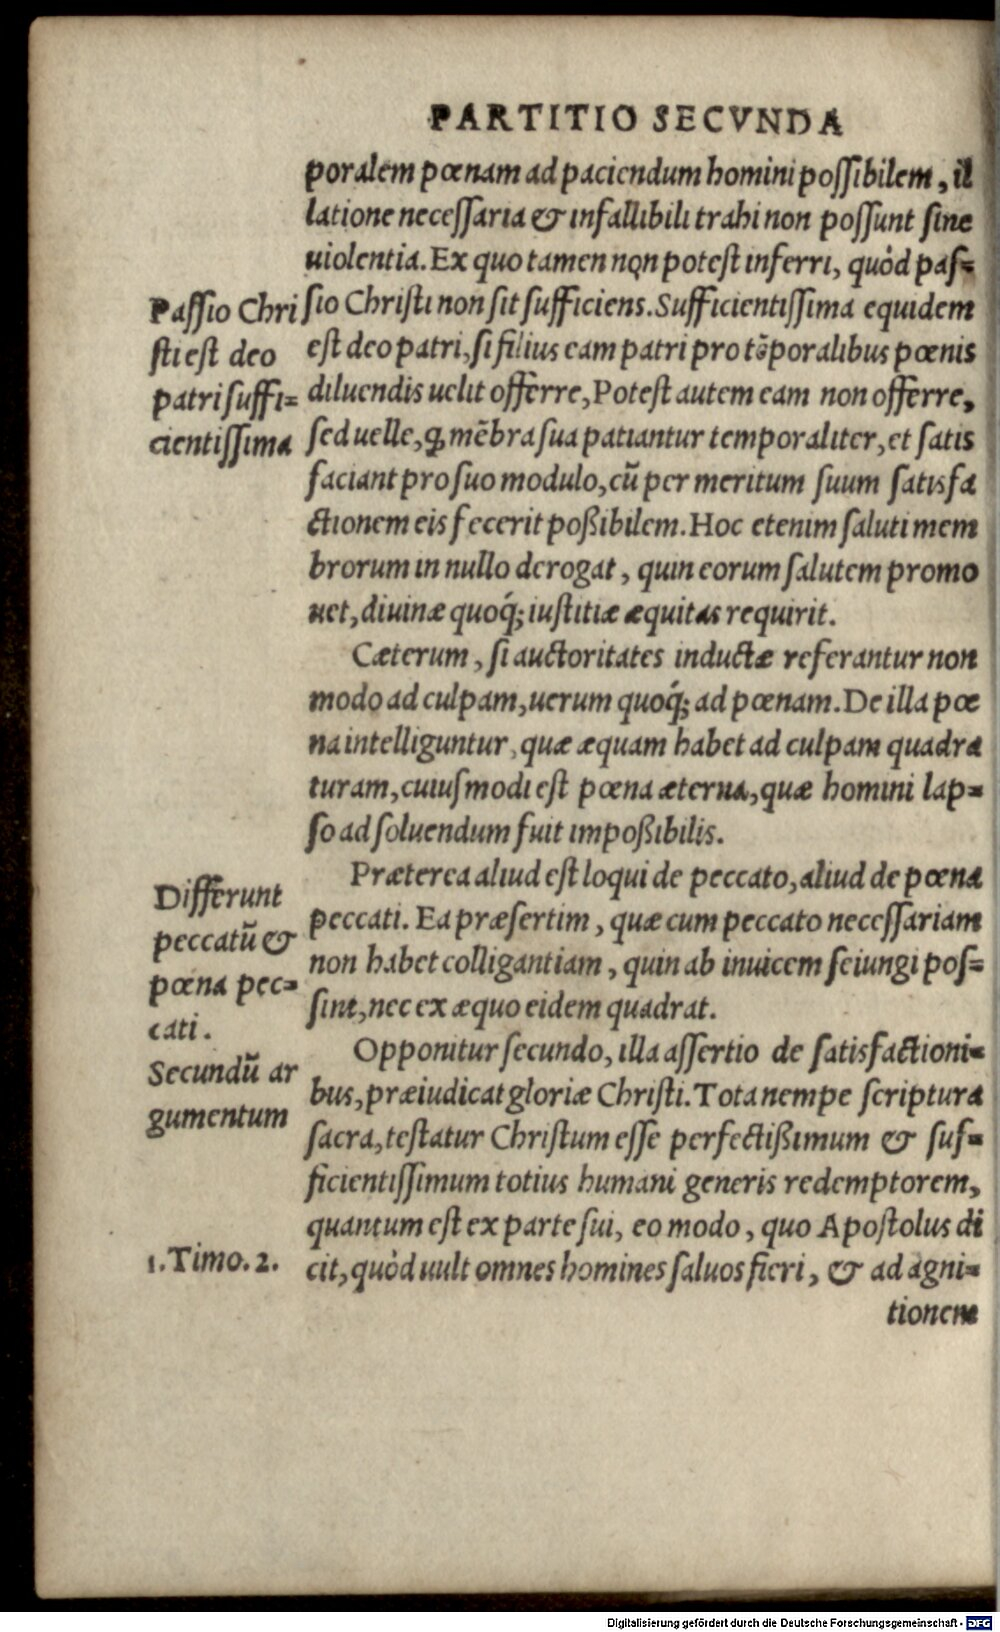 PARTITIO SECVNDA
poralem pœnam ad paciendum homini poſſibilem, il
latione neceſſaria & infallibili trahi non poſſunt ſine
uiolentia. Ex quo tamen non poteſt inferri, quòd paſ=
ſio Chriſti non ſit ſufficiens. Sufficientiſſima equidem
eſt deo patri, ſi filius eam patri pro tēporalibus pœnis
diluendis uelit offerre, Poteſt autem eam non offerre,
ſed uelle, ꝙ mēbra ſua patiantur temporaliter, et ſatis
faciant pro ſuo modulo, cū per meritum ſuum ſatisfa
ctionem eis fecerit poßibilem. Hoc etenim ſaluti mem
brorum in nullo derogat, quin eorum ſalutem promo
uet, diuinæ quoq́; iuſtitiæ æquitas requirit.
Cæterum, ſi auctoritates inductæ referantur non
modo ad culpam, uerum quoq́; ad pœnam. De illa pœ
na intelliguntur, quæ æquam habet ad culpam quadra
turam, cuiuſmodi eſt pœna æterna, quæ homini lap=
ſo ad ſoluendum fuit impoßibilis.
Præterea aliud eſt loqui de peccato, aliud de pœna
peccati. Ea præſertim, quæ cum peccato neceſſariam
non habet colligantiam, quin ab inuicem ſeiungi poſ=
ſint, nec ex æquo eidem quadrat.
Opponitur ſecundo, illa aſſertio de ſatisfactioni=
bus, præiudicat gloriæ Chriſti. Tota nempe ſcriptura
ſacra, teſtatur Chriſtum eſſe perfectißimum & ſuf=
ficientiſſimum totius humani generis redemptorem,
quantum eſt ex parte ſui, eo modo, quo Apoſtolus di
cit, quòd uult omnes homines ſaluos fieri, & ad agni=
tionem
Paſſio Chri
ſti eſt deo
patri ſuffi=
cientiſſima
Differunt
peccatū &
pœna pec=
cati.
Secundū ar
gumentum
1. Timo. 2.
Digitalisierung gefördert durch die Deutsche Forschungsgemeinschaft - DFG